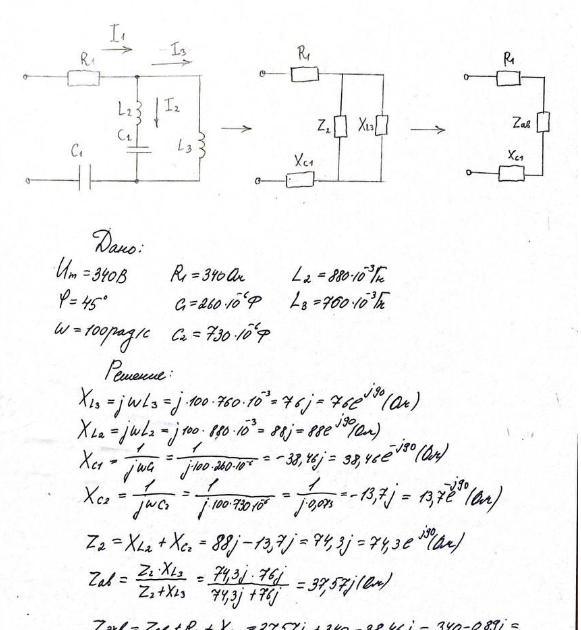 I₁
I₃
R₁
L₂
I₂
C₁
C₁
L₃
R₁
Z₂
X_L3
X_C1
R₁
Zab
X_C1
Дано:
Um = 340В R₁ = 340 Ом L₂ = 880·10⁻³Гн
φ = 45° C₁ = 260·10⁻⁶Ф L₃ = 760·10⁻³Гн
W = 100 рад/с C₂ = 730·10⁻⁶Ф
Решение:
X_L3 = jWL₃ = j·100·760·10⁻³ = 76j = 76e^j90 (Ом)
X_L2 = jWL₂ = j100·880·10⁻³ = 88j = 88e^j90 (Ом)
X_C1 = 1/jWC₁ = 1/j·100·260·10⁻⁶ = -38,46j = 38,46e^-j90 (Ом)
X_C2 = 1/jWC₂ = 1/j·100·730·10⁻⁶ = 1/j·0,073 = -13,7j = 13,7e^-j90 (Ом)
Z₂ = X_L2 + X_C2 = 88j - 13,7j = 74,3j = 74,3e^j90 (Ом)
Zab = Z₂·X_L3/Z₂+X_L3 = 74,3j·76j/74,3j+76j = 37,57j (Ом)
= 37,57j + 340 - 38,46j = 340 - 0,89j =